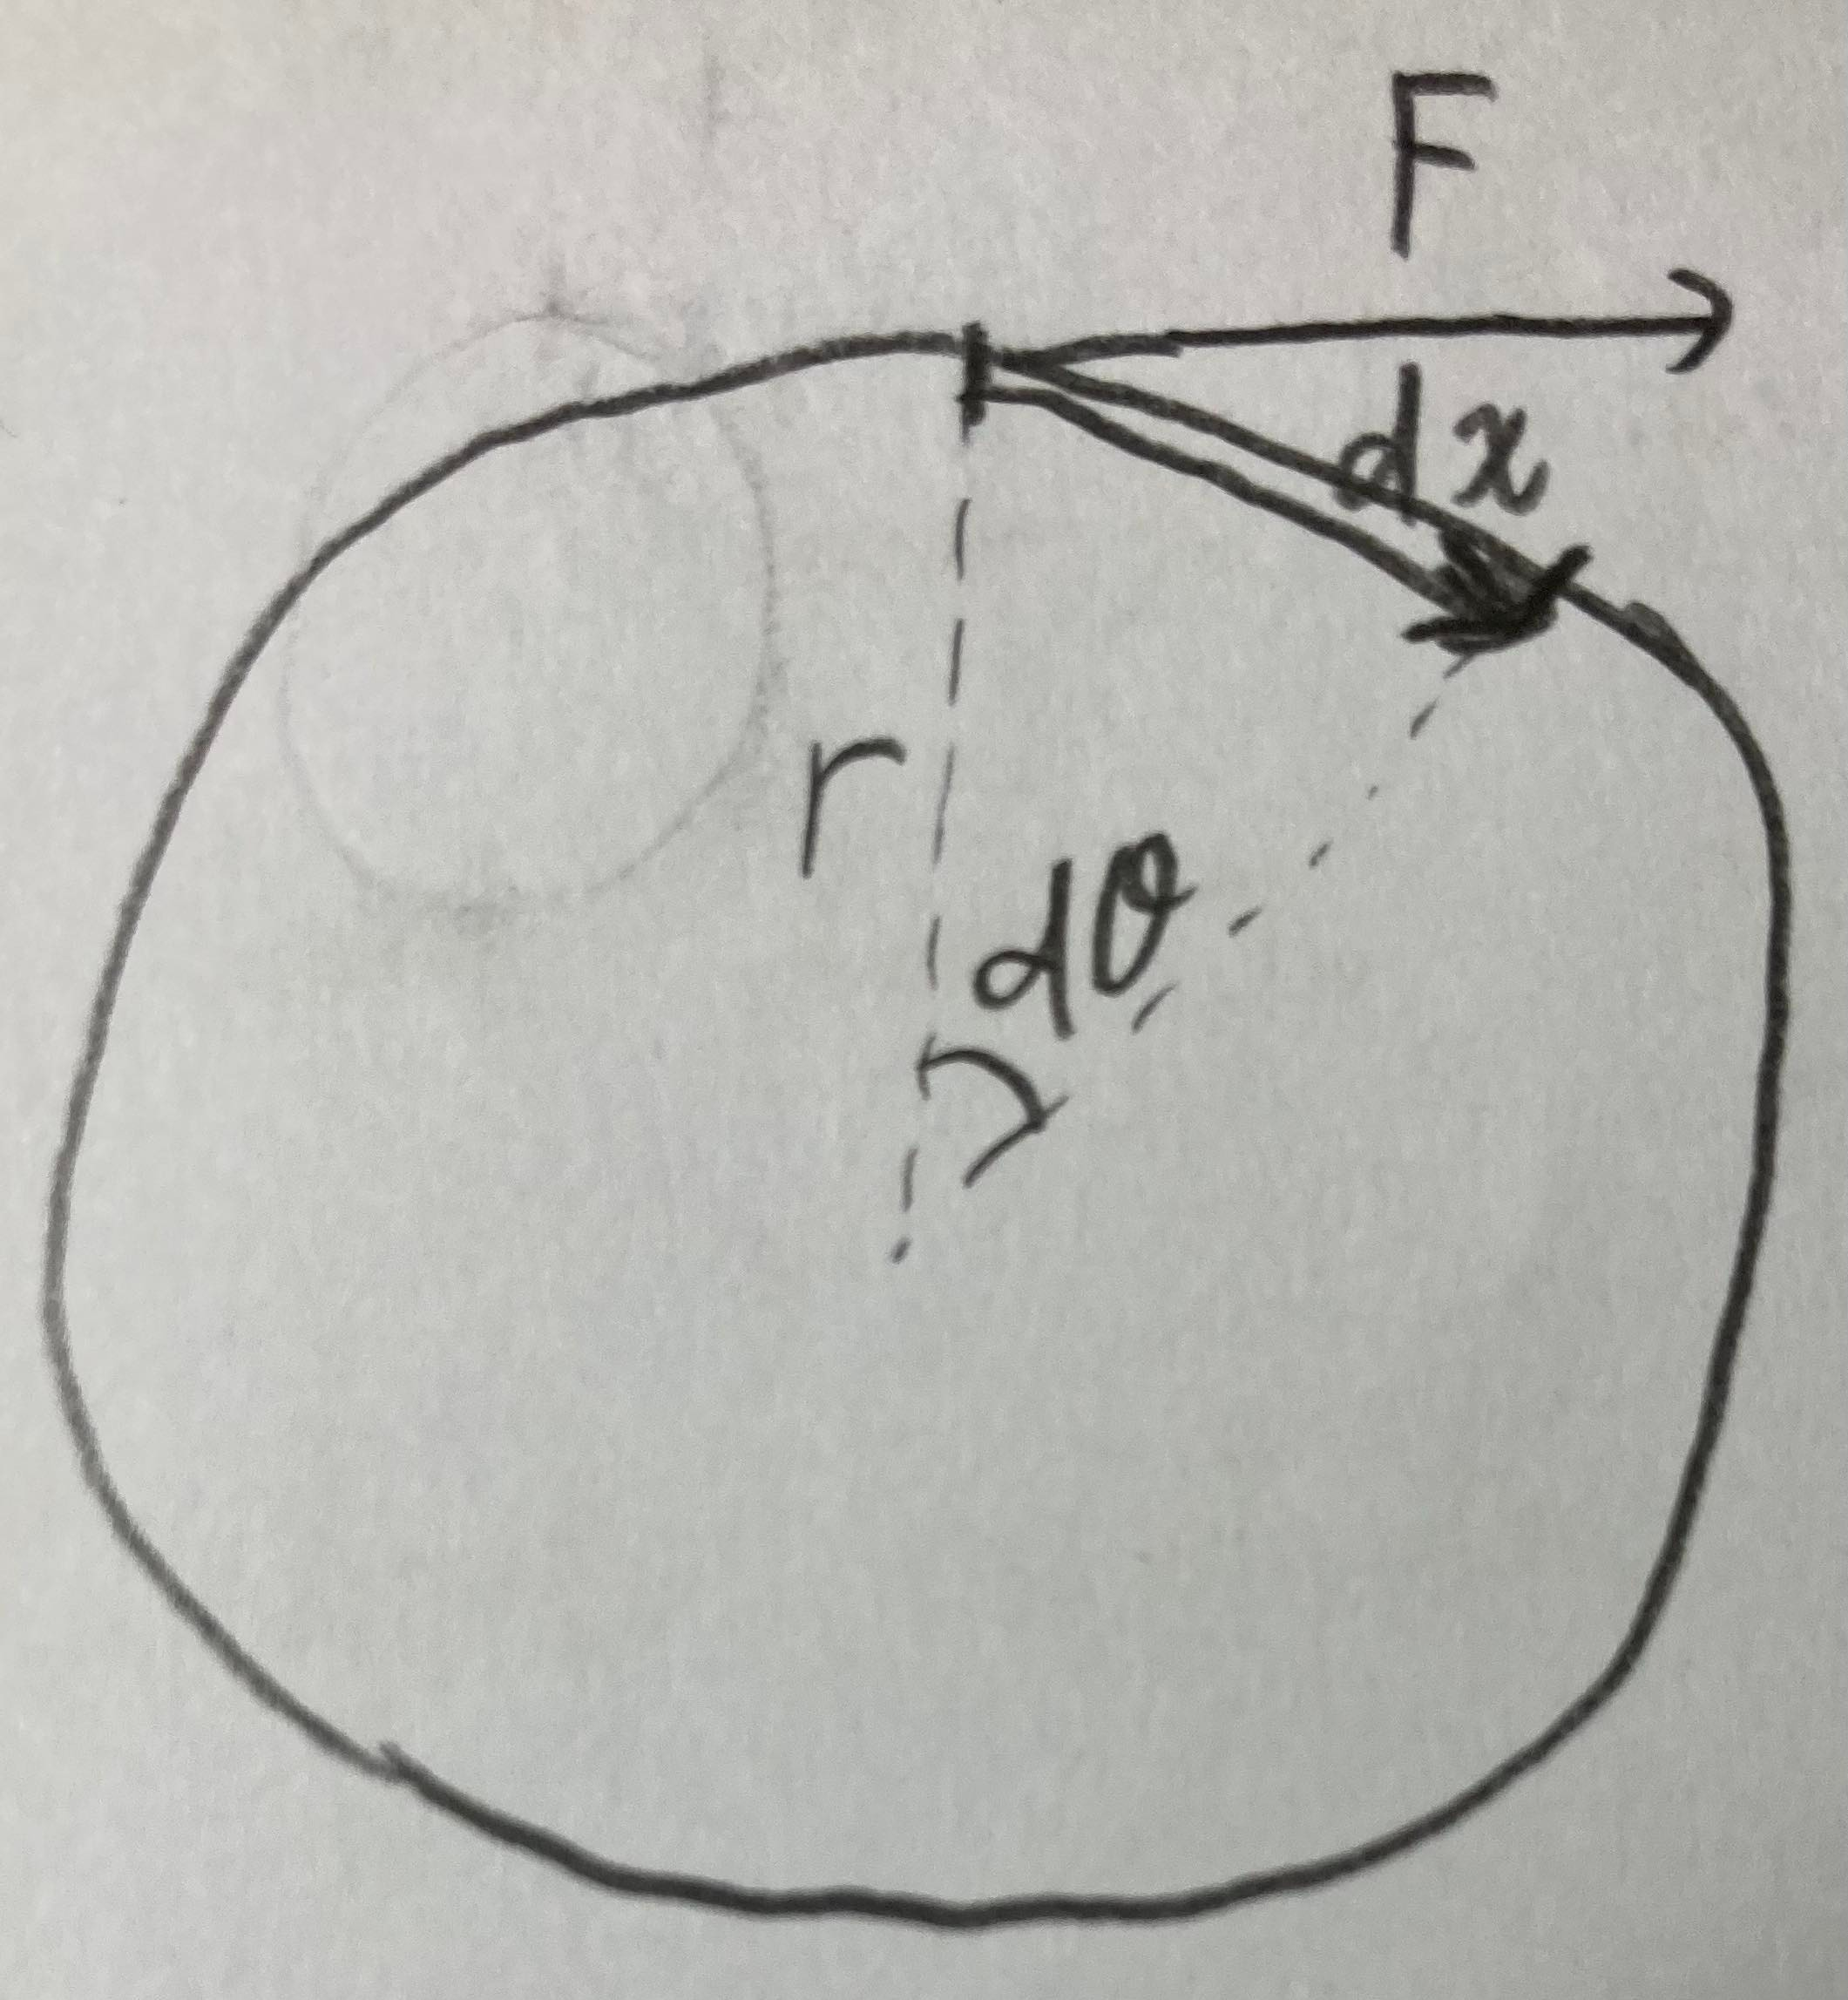 F
dx
r
dθ